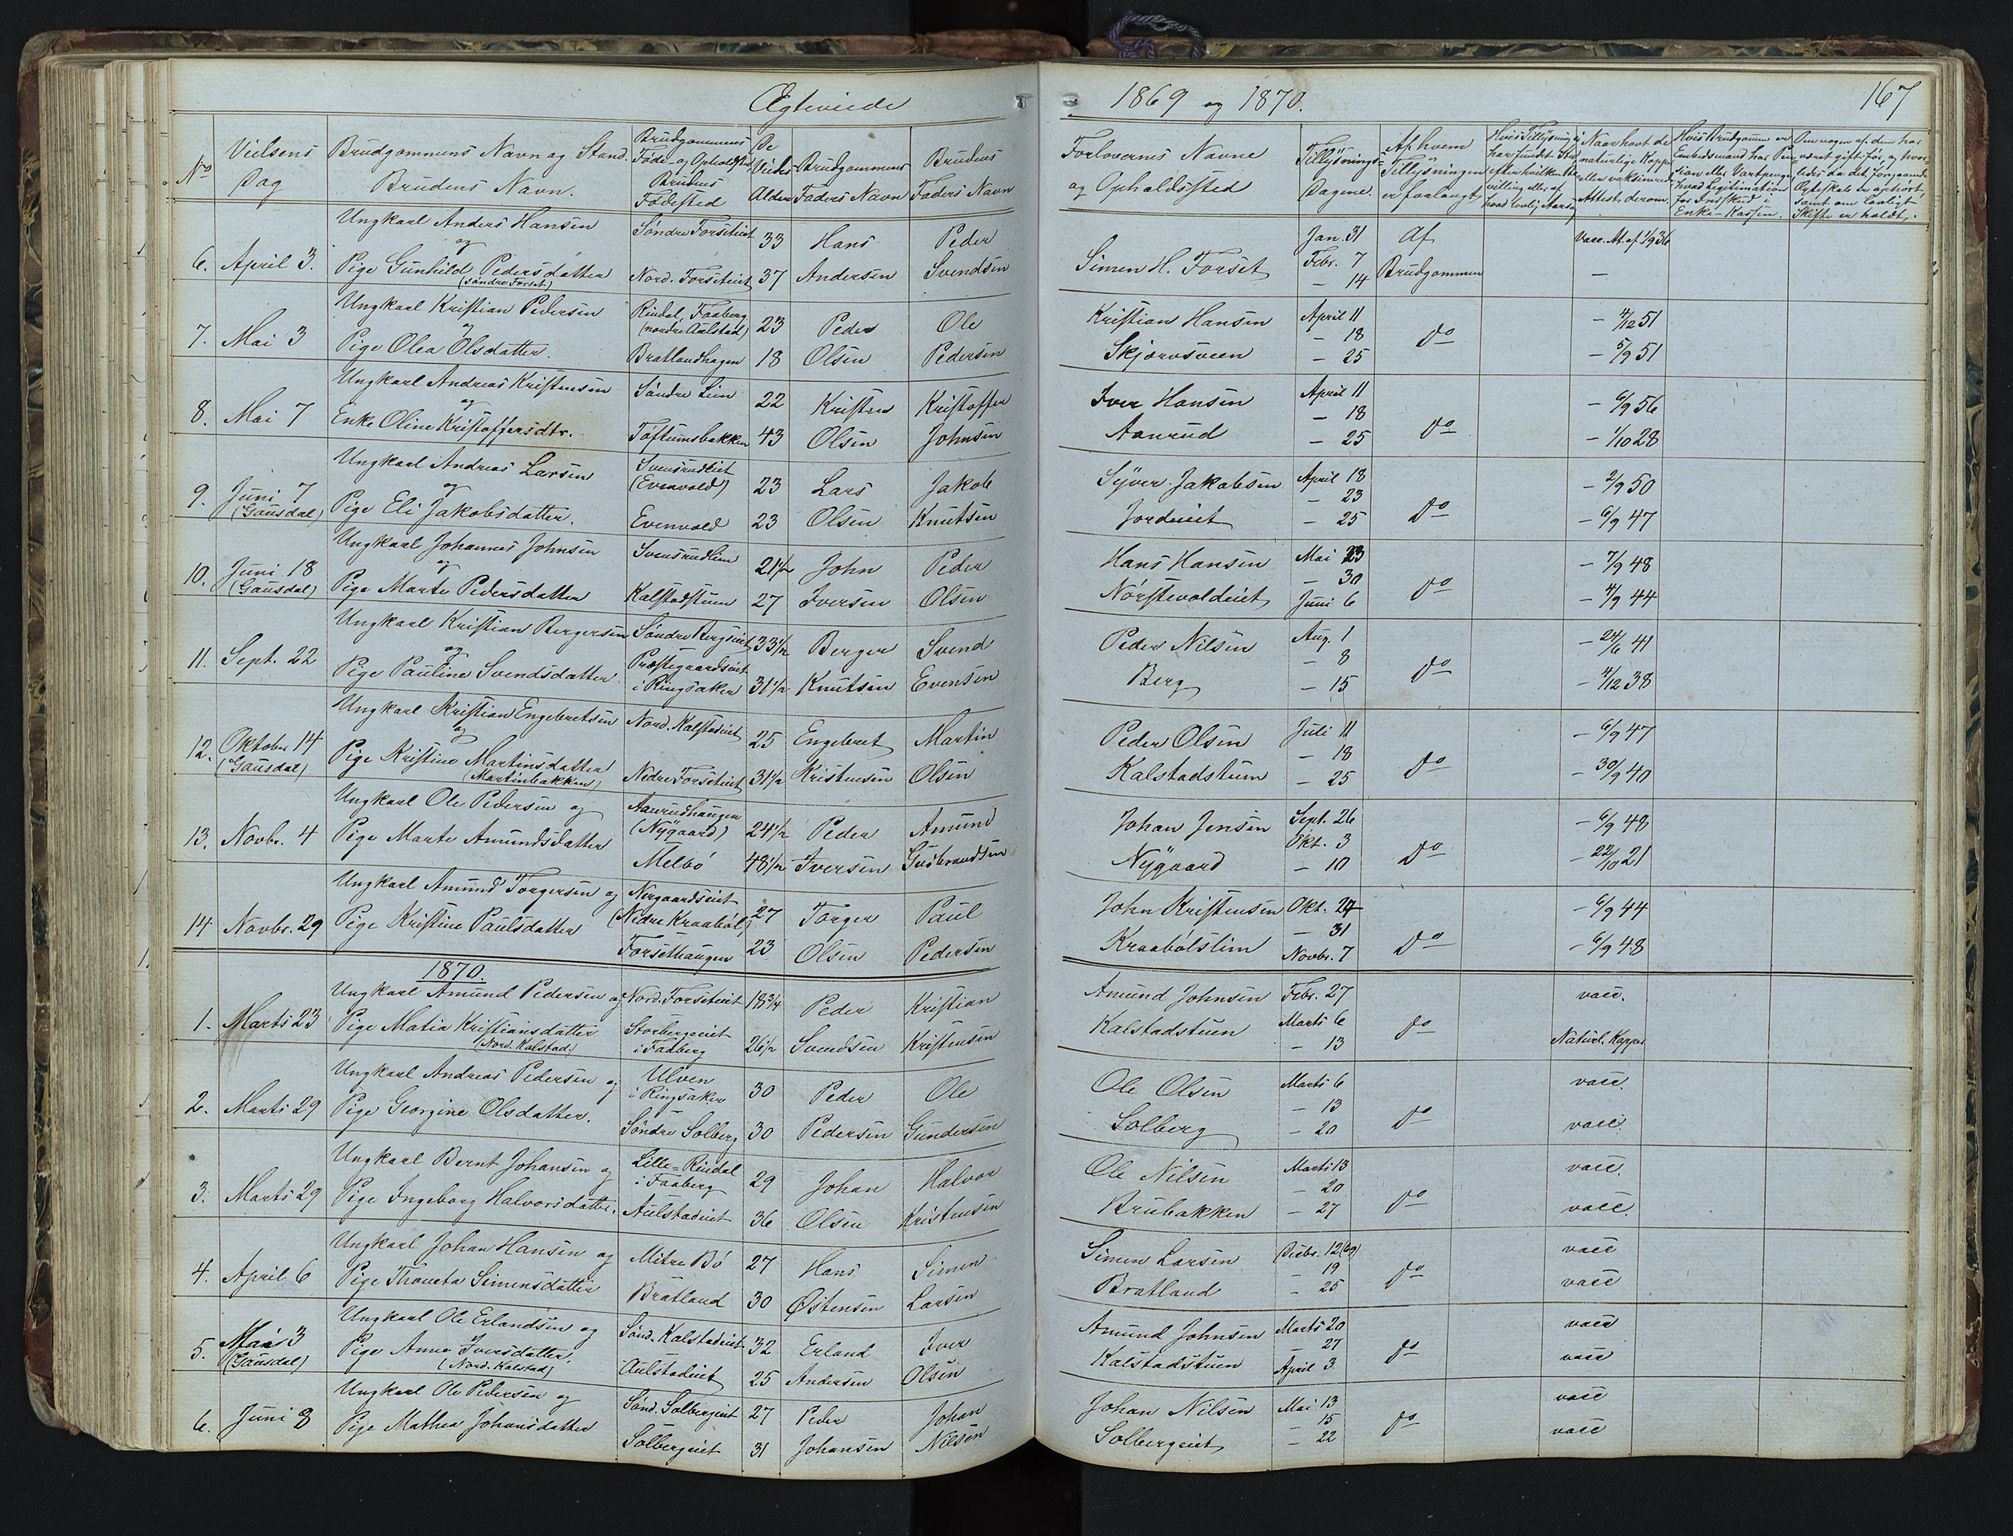 Ægteviede 1869 og 1870. 167
No Vielsens Dag Brudgommens Navn og Stand. Brudens Navn. Brudgommens Føde- og Opholdssted Brudens Fødested De Viedes Alder Brudgommens Faders Navn Brudens Faders Navn Forlovernes Navne og Opholdssted Tillysnings-Dagene. Af hvem Tillysningen er forlangt
Ungkarl Anders Hansen Søndre Forseteiet 33 Hans Peder Jan. 31 Af Vacc. At. af 1/9 36
og
6. April 3. Pige Gunhild Pedersdatter Nord. Forseteiet 37 Andersen Svendsen Simen H. Forset Febr. 7 Brudgommen —
(Søndre Forset.) — 14
Ungkarl Kristian Pedersen Rindal, Faaberg (nordre Aulstad) 23 Peder Ole Kristian Hansen April 11 — 4/12 51
og
7. Mai 3 — 18 Do
Pige Olea Olsdatter. Bratlandhagen 18 Olsen Pedersen Skjørvsveen — 25 — 5/9 51
Ungkarl Andreas Kristensen Søndre Lien 22 Kristen Kristoffer Iver Hansen April 11 — 6/9 56
og
8. Mai 7 — 18
Enke Oline Kristoffersdtr. Toftumsbakken 43 Olsen Johnsen Aanrud — 25 Do — 1/10 28
Ungkarl Andreas Larsen Svensrudeiet (Evenvold) 23 Lars Jakob Syver Jakobsen April 18 — 2/9 50
og
9. Juni 7 — 23
(Gausdal) Pige Eli Jakobsdatter. Evenvold 23 Olsen Knutsen Jordeiet — 25 Do — 6/9 47
Ungkarl Johannes Johnsen Svensrudlien 21 1/2 John Peder Hans Hansen Mai 23 — 7/9 48
og
10. Juni 18 — 30 Do
(Gausdal) Pige Marte Pedersdatter Kalstadstuen 27 Iversen Olsen Nørstevoldeiet Juni 6 — 4/9 44
Ungkarl Kristian Bergersen Søndre Bergseiet 33 1/2 Berger Svend Peder Nilsen Aug. 1 — 24/6 41
og
11. Sept. 22 — 8 Do
Pige Pauline Svendsdatter Præstegaardseiet i Ringsaker 31 1/2 Knutsen Evensen Berg — 15 — 4/12 38
Ungkarl Kristian Engebretsen Nord. Kalstadeiet 25 Engebret Martin Peder Olsen Juli 11 — 6/9 47
og
12. Oktober 14 — 18
(Gausdal) Pige Kristine Martinsdatter Nedre Forseteiet 31 1/2 Kristensen Olsen Kalstadstuen — 25 Do — 30/9 40
(Martinbakken)
Ungkarl Ole Pedersen og Aanrudhaugen (Nygaard) 24 1/2 Peder Amund Johan Jensen Sept. 26 — 6/9 48
13. Novbr. 4 Okt. 3
Pige Marte Amundsdatter Melbø 48 1/2 Iversen Gudbrandsen Nygaard — 10 Do — 22/10 21
Ungkarl Amund Torgersen og Nergaardseiet (Nedre Kraabøl) 27 Torger Paul John Kristensen Okt. 24 — 6/9 44
14 Novbr. 29 — 31
Pige Kristine Paulsdatter Forsethaugen 23 Olsen Pedersen Kraabølslien Novbr. 7 Do — 6/9 48
1870.
Ungkarl Amund Pedersen og Nord. Forseteiet 18 3/4 Peder Kristian Amund Johnsen Febr. 27 vacc.
1. Marts 23 Marts 6 Do
Pige Matia Kristiansdatter Storbergeiet i Faaberg 26 1/2 Svendsen Kristensen Kalstadstuen — 13 Naturl. Kopper
(Nord. Kalstad.)
Ungkarl Andreas Pedersen og Ulven i Ringsaker 30 Peder Ole Ole Olsen Marts 6 vacc.
2. Marts 29 — 13 Do
Pige Georgine Olsdatter. Søndre Solberg 30 Pedersen Gundersen Solberg — 20 vacc.
Ungkarl Bernt Johansen og Lille-Rindal i Faaberg 29 Johan Halvor Ole Nilsen Marts 13 vacc.
3. Marts 29 — 20
Pige Ingeborg Halvorsdatter. Aulstadeiet 36 Olsen Kristensen Brubakken — 27 Do vacc.
Ungkarl Johan Hansen og Mitre Bø 27 Hans Simen Simen Larsen Decbr. 12 (69) vacc
4. April 6 — 19 Do
Pige Thoneta Simensdatter Bratland 30 Østensen Larsen Bratland — 25 vacc
Ungkarl Ole Erlandsen og Sønd. Kalstadeiet 32 Erland Iver Amund Johnsen Marts 20 vacc
5. Mai 3 — 27 Do
(Gausdal) Pige Anne Iversdatter. Aulstadeiet 25 Andersen Olsen Kalstadstuen April 3 vacc
(Nord. Kalstad)
Ungkarl Ole Pedersen og Sønd. Solbergeiet 27 Peder Johan Johan Nilsen Mai 13 vacc
6. Juni 8 — 15 Do
Pige Mathea Johansdatter Solbergeiet 31 Johansen Nilsen Solbergeiet — 22 vacc